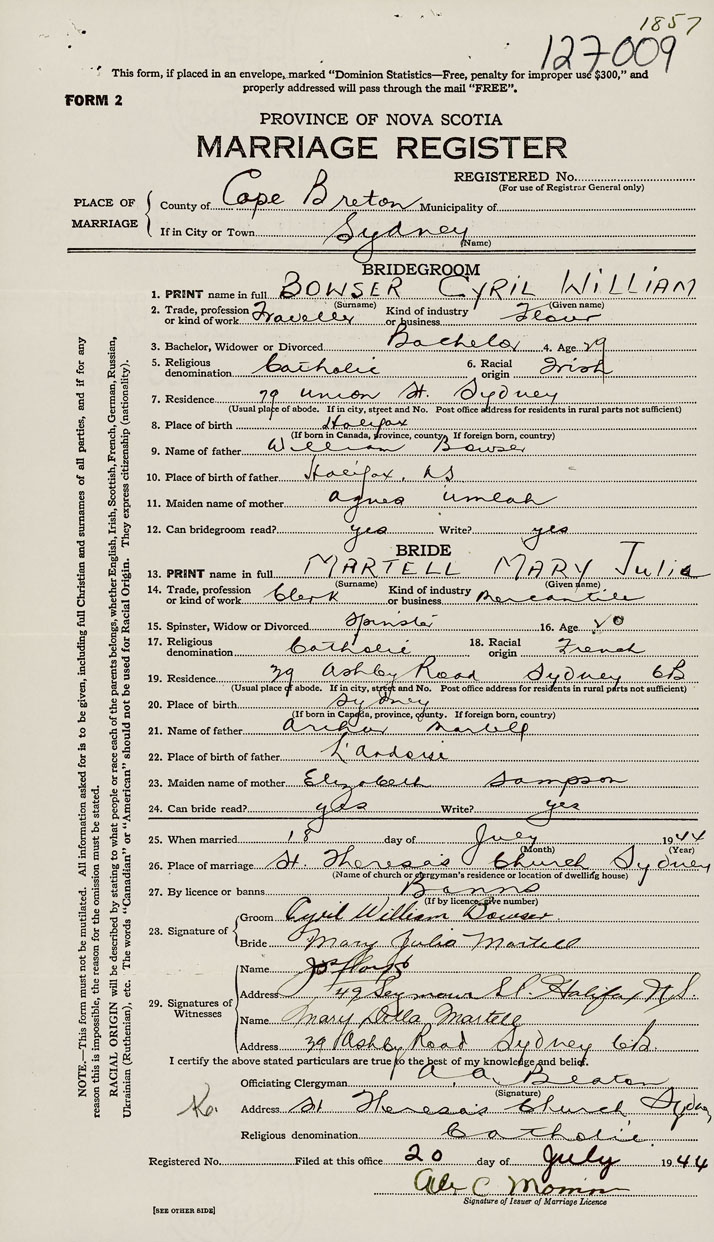 1857
127009
This form, if placed in an envelope, marked “Dominion Statistics—Free, penalty for improper use $300,” and
properly addressed will pass through the mail “FREE”.
FORM 2
PROVINCE OF NOVA SCOTIA
MARRIAGE REGISTER
REGISTERED No.
(For use of Registrar General only)
PLACE OF MARRIAGE
County of Cape Breton Municipality of
If in City or Town Sydney
(Name)
BRIDEGROOM
1. PRINT name in full BOWSER CYRIL WILLIAM
(Surname) (Given name)
2. Trade, profession or kind of work Traveller Kind of industry or business Flour
3. Bachelor, Widower or Divorced Bachelor 4. Age 29
5. Religious denomination Catholic 6. Racial origin Irish
7. Residence 79 Union St. Sydney
(Usual place of abode. If in city, street and No. Post office address for residents in rural parts not sufficient)
8. Place of birth Halifax
(If born in Canada, province, county. If foreign born, country)
9. Name of father William Bowser
10. Place of father Halifax, NS
11. Maiden name of mother Agnes Umlah
12. Can bridegroom read? yes Write? yes
BRIDE
13. PRINT name in full MARTELL MARY Julia
(Surname) (Given name)
14. Trade, profession or kind of work Clerk Kind of industry or business Mercantile
15. Spinster, Widow or Divorced Spinster 16. Age 20
17. Religious denomination Catholic 18. Racial origin French
19. Residence 39 Ashby Road Sydney CB
(Usual place of abode. If in city, street and No. Post office address for residents in rural parts not sufficient)
20. Place of birth Sydney
(If born in Canada, province, county. If foreign born, country)
21. Name of father Arthur Martell
22. Place of birth of father L'Ardoise
23. Maiden name of mother Elizabeth Sampson
24. Can bride read? yes Write? yes
25. When married 18 day of July 1944
(Month) (Year)
26. Place of marriage St. Theresa's Church Sydney
(Name of church or clergyman's residence or location of dwelling house)
27. By licence or banns Banns
(If by licence, give number)
28. Signature of
Groom Cyril William Bowser
Bride Mary Julia Martell
29. Signatures of Witnesses
Name
Address 49 Seymour St. Halifax N.S.
Name Mary Martell
Address 39 Ashby Road Sydney CB.
I certify the above stated particulars are true to the best of my knowledge and belief.
Officiating Clergyman A. A. Beaton
(Signature)
Address St Theresa's Church Sydney
Religious denomination Catholic.
Registered No. Filed at this office 20 day of July 1944
Signature of Issuer of Marriage Licence
[SEE OTHER SIDE]
NOTE.—This form must not be mutilated. All information asked for is to be given, including full Christian and surnames of all parties, and if for any
reason this is impossible, the reason for the omission must be stated.
RACIAL ORIGIN will be described by stating to what people or race each of the parents belongs, whether English, Irish, Scottish, French, German, Russian,
Ukrainian (Ruthenian), etc. The words “Canadian” or “American” should not be used for Racial Origin. They express citizenship (nationality).